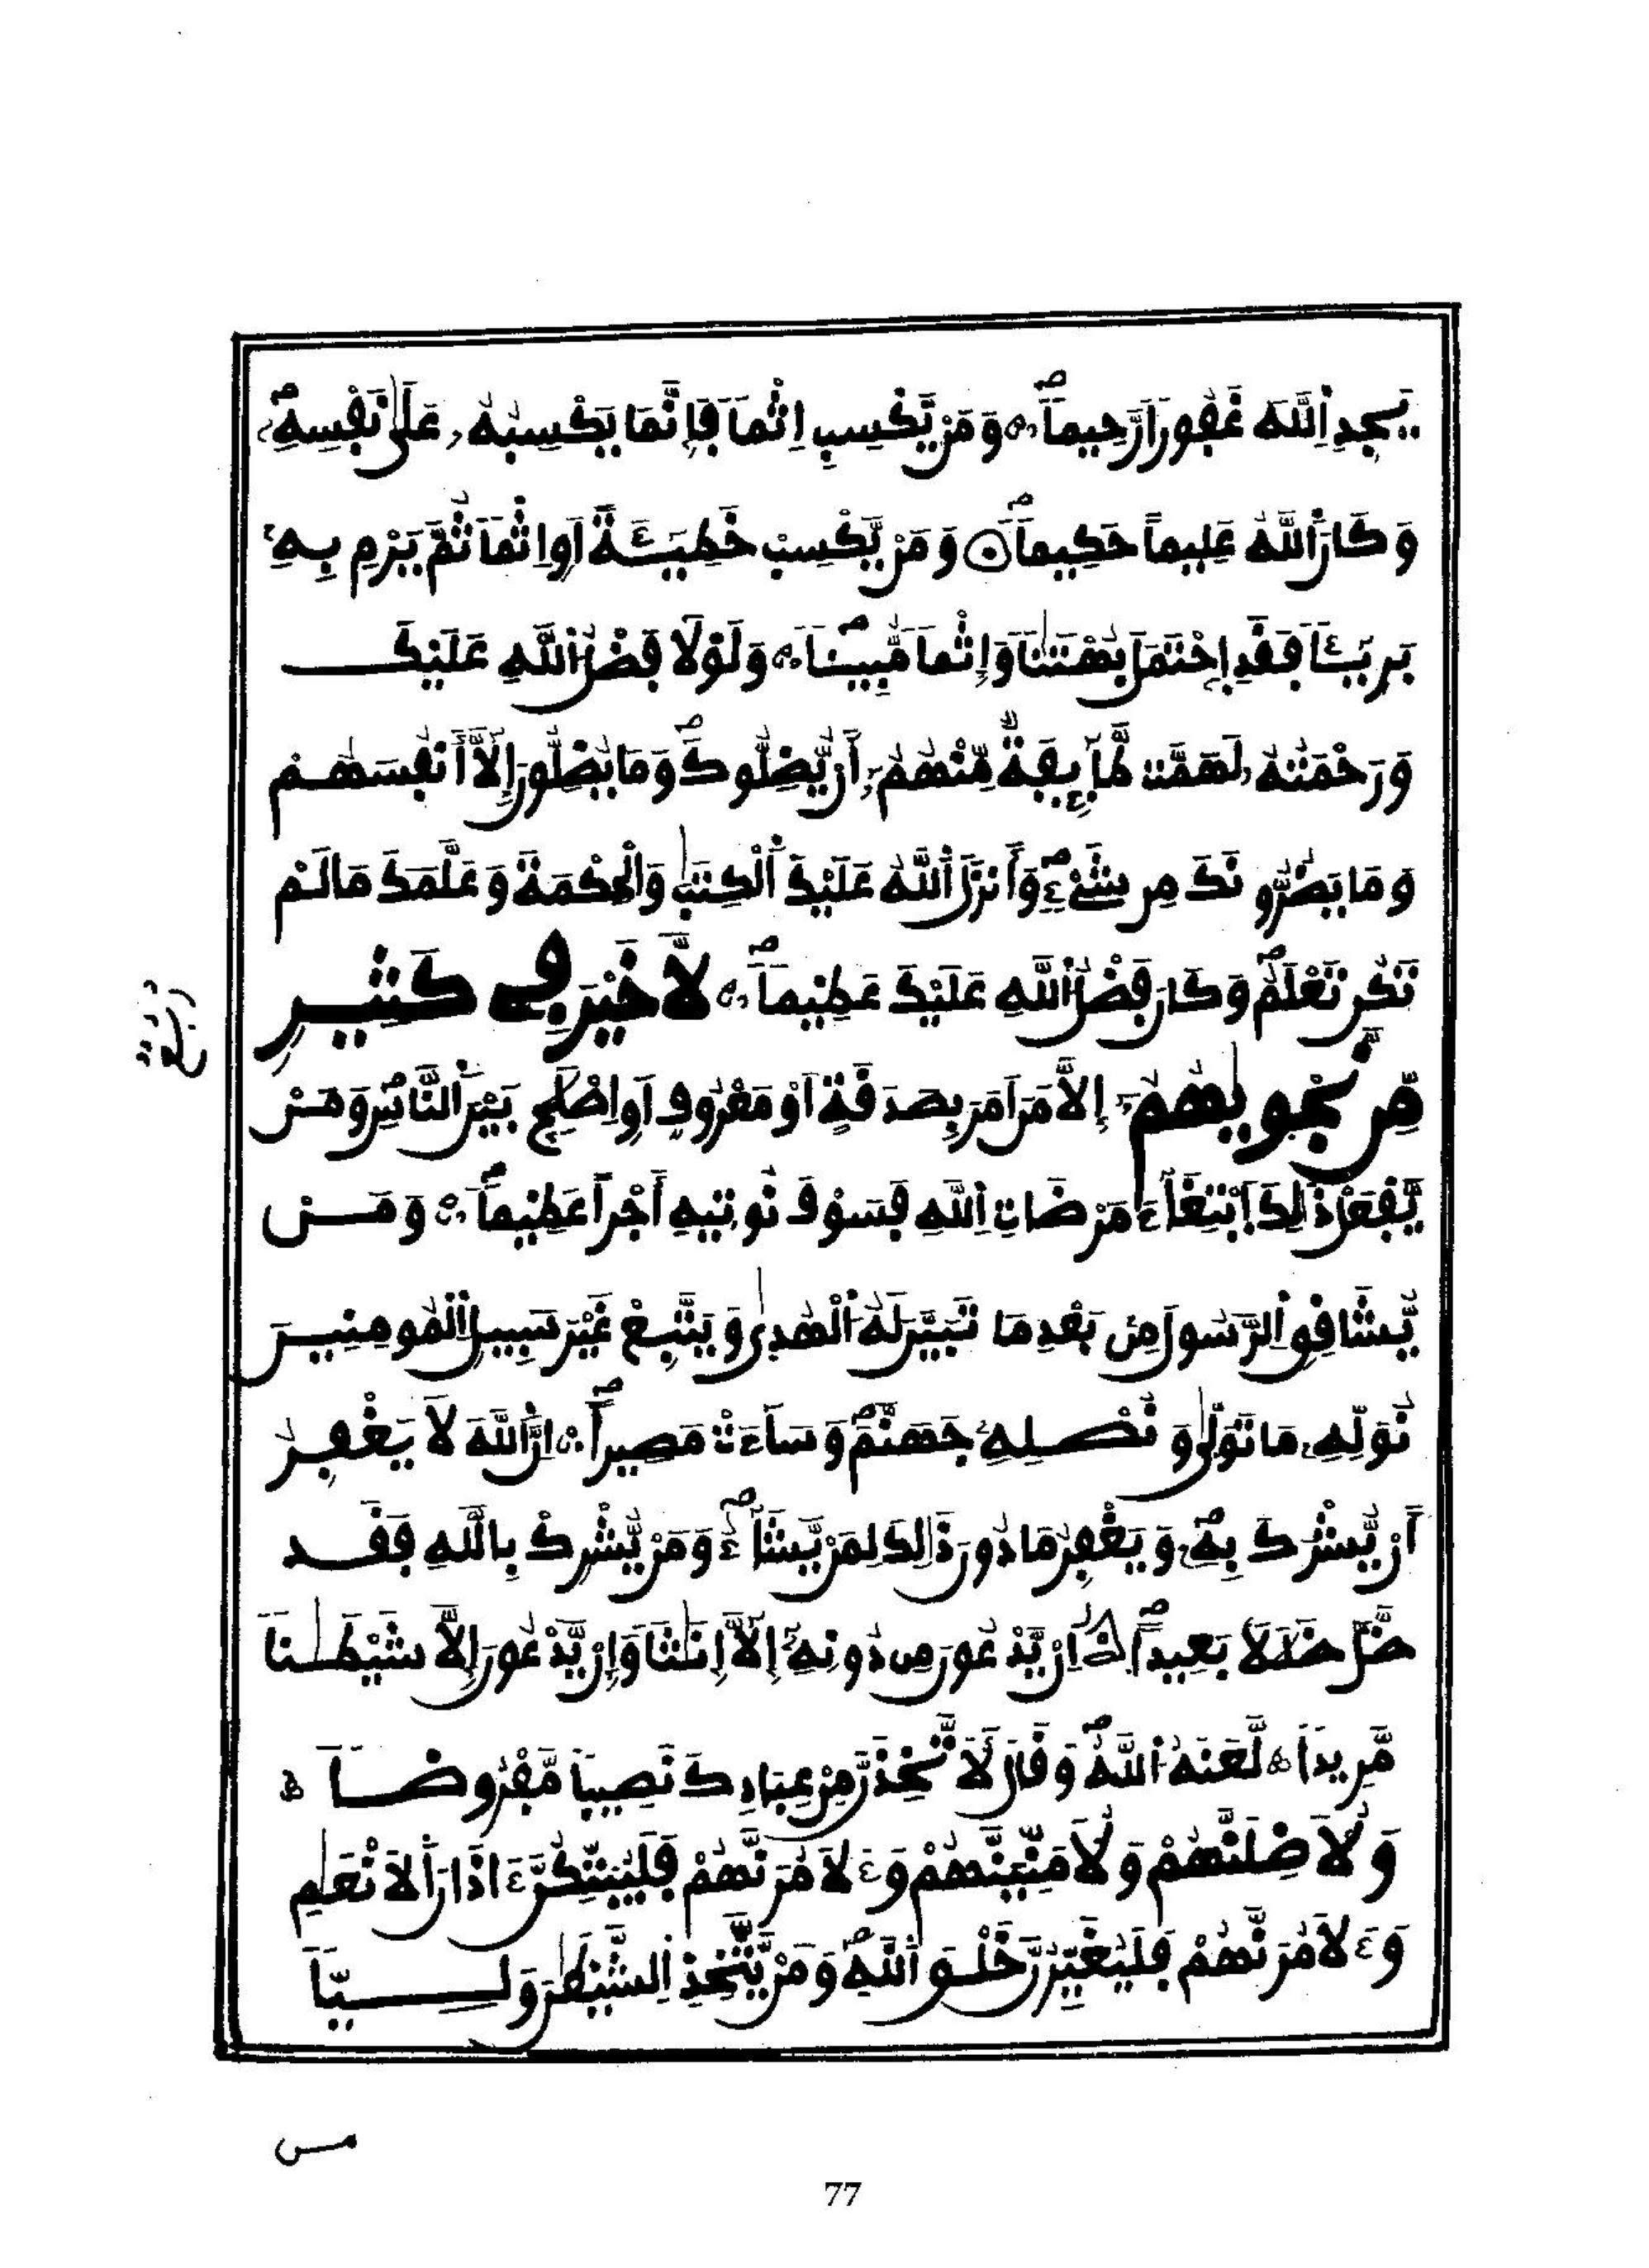 يَجِدِ اِللَّهَ غَفُوراً رَّحِيماً وَمَنْ يَّكْسِبِ اِثْماً فَإِنَّمَا يَكْسِبُهُ عَلَىٰ نَفْسِهِ
وَكَانَ اَللَّهُ عَلِيماً حَكِيماً وَمَنْ يَّكْسِبْ خَطِئَةً اَوِ اِثْماً ثُمَّ يَرْمِ بِهِ
بَرِئَاً فَقَدِ اِحْتَمَلَ بُهْتَٰناً وَإِثْماً مُّبِيناً وَلَوْلَا فَضْلُ اُللَّهِ عَلَيْكَ
وَرَحْمَتُهُ لَهَمَّت طَّآئِفَةٌ مِّنْهُمُ أَنْ يُّضِلُّوكَ وَمَا يُضِلُّونَ إِلَّا أَنفُسَهُمْ
وَمَا يَضُرُّونَكَ مِن شَيْءٍ وَأَنزَلَ اَللَّهُ عَلَيْكَ اَلْكِتَٰبَ وَالْحِكْمَةَ وَعَلَّمَكَ مَا لَمْ
تَكُن تَعْلَمُ وَكَانَ فَضْلُ اُللَّهِ عَلَيْكَ عَظِيماً لَّا خَيْرَ فِي كَثِيرٍ
رُبُع
مِّن نَّجْوِيٰهُمُ إِلَّا مَنَ اَمَرَ بِصَدَقَةٍ اَوْ مَعْرُوفٍ اَوِ اِصْلَٰحٍ بَيْنَ اَلنَّاسِ وَمَنْ
يَّفْعَلْ ذَٰلِكَ اَبْتِغَآءَ مَرْضَاتِ اِللَّهِ فَسَوْفَ نُوتِيهِ أَجْراً عَظِيماً وَمَنْ
يُّشَاقِقِ اِلرَّسُولَ مِنۢ بَعْدِ مَا تَبَيَّنَ لَهُ اُلْهُدِىٰ وَيَتَّبِعْ غَيْرَ سَبِيلِ اِلْمُومِنِينَ
نُوَلِّهِ مَا تَوَلّىٰ وَنُصْلِهِ جَهَنَّمَ وَسَآءَتْ مَصِيراً اِنَّ اَللَّهَ لَا يَغْفِرُ
أَنْ يُّشْرَكَ بِهِ وَيَغْفِرُ مَا دُونَ ذَٰلِكَ لِمَنْ يَّشَآءُ وَمَنْ يُّشْرِكْ بِاللَّهِ فَقَد
ضَّلَّ ضَلَٰلَا بَعِيداً اِنْ يَّدْعُونَ مِن دُونِهِ إِلَّا إِنَٰثاً وَإِنْ يَّدْعُونَ إِلَّا شَيْطَٰناً
مَّرِيداً لَّعَنَهُ اُللَّهُ وَقَالَ لَأَتَّخِذَنَّ مِنْ عِبَادِكَ نَصِيباً مَّفْرُوضاً
وَلَأُضِلَّنَّهُمْ وَلَأُمَنِّيَنَّهُمْ وَءَلَامُرَنَّهُمْ فَلَيُبَتِّكُنَّ ءَاذَانَ اَلَانْعَٰمِ
وَءَلَامُرَنَّهُمْ فَلَيُغَيِّرُنَّ خَلْقَ اَللَّهِ وَمَنْ يَّتَّخِذِ اِلشَّيْطَٰنَ وَلِيّاً
مس
77